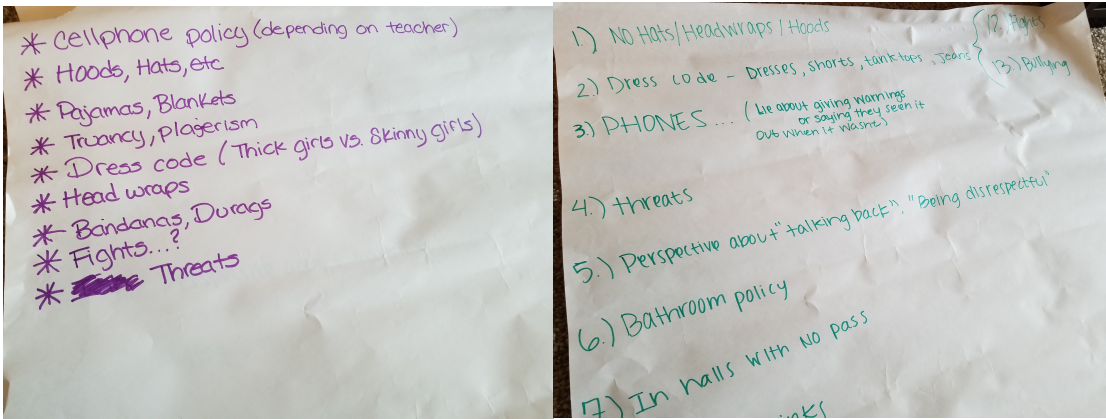 * Cellphone policy (depending on teacher)
* Hoods, Hats, etc
* Pajamas, Blankets
* Truancy, plagerism
* Dress code (Thick girls vs. Skinny girls)
* Head wraps
* Bandanas, Durags
* Fights...?
* Threats
1.) No Hats/Headwraps/Hoods
2.) Dress code - Dresses, shorts, tanktops, Jeans
3.) PHONES... (Lie about giving warnings
or saying they seen it
out when it wasnt)
4.) threats
5.) Perspective about "talking back", "Being disrespectful"
6.) Bathroom policy
7.) In halls with No pass
12. Fights
13.) Bullying